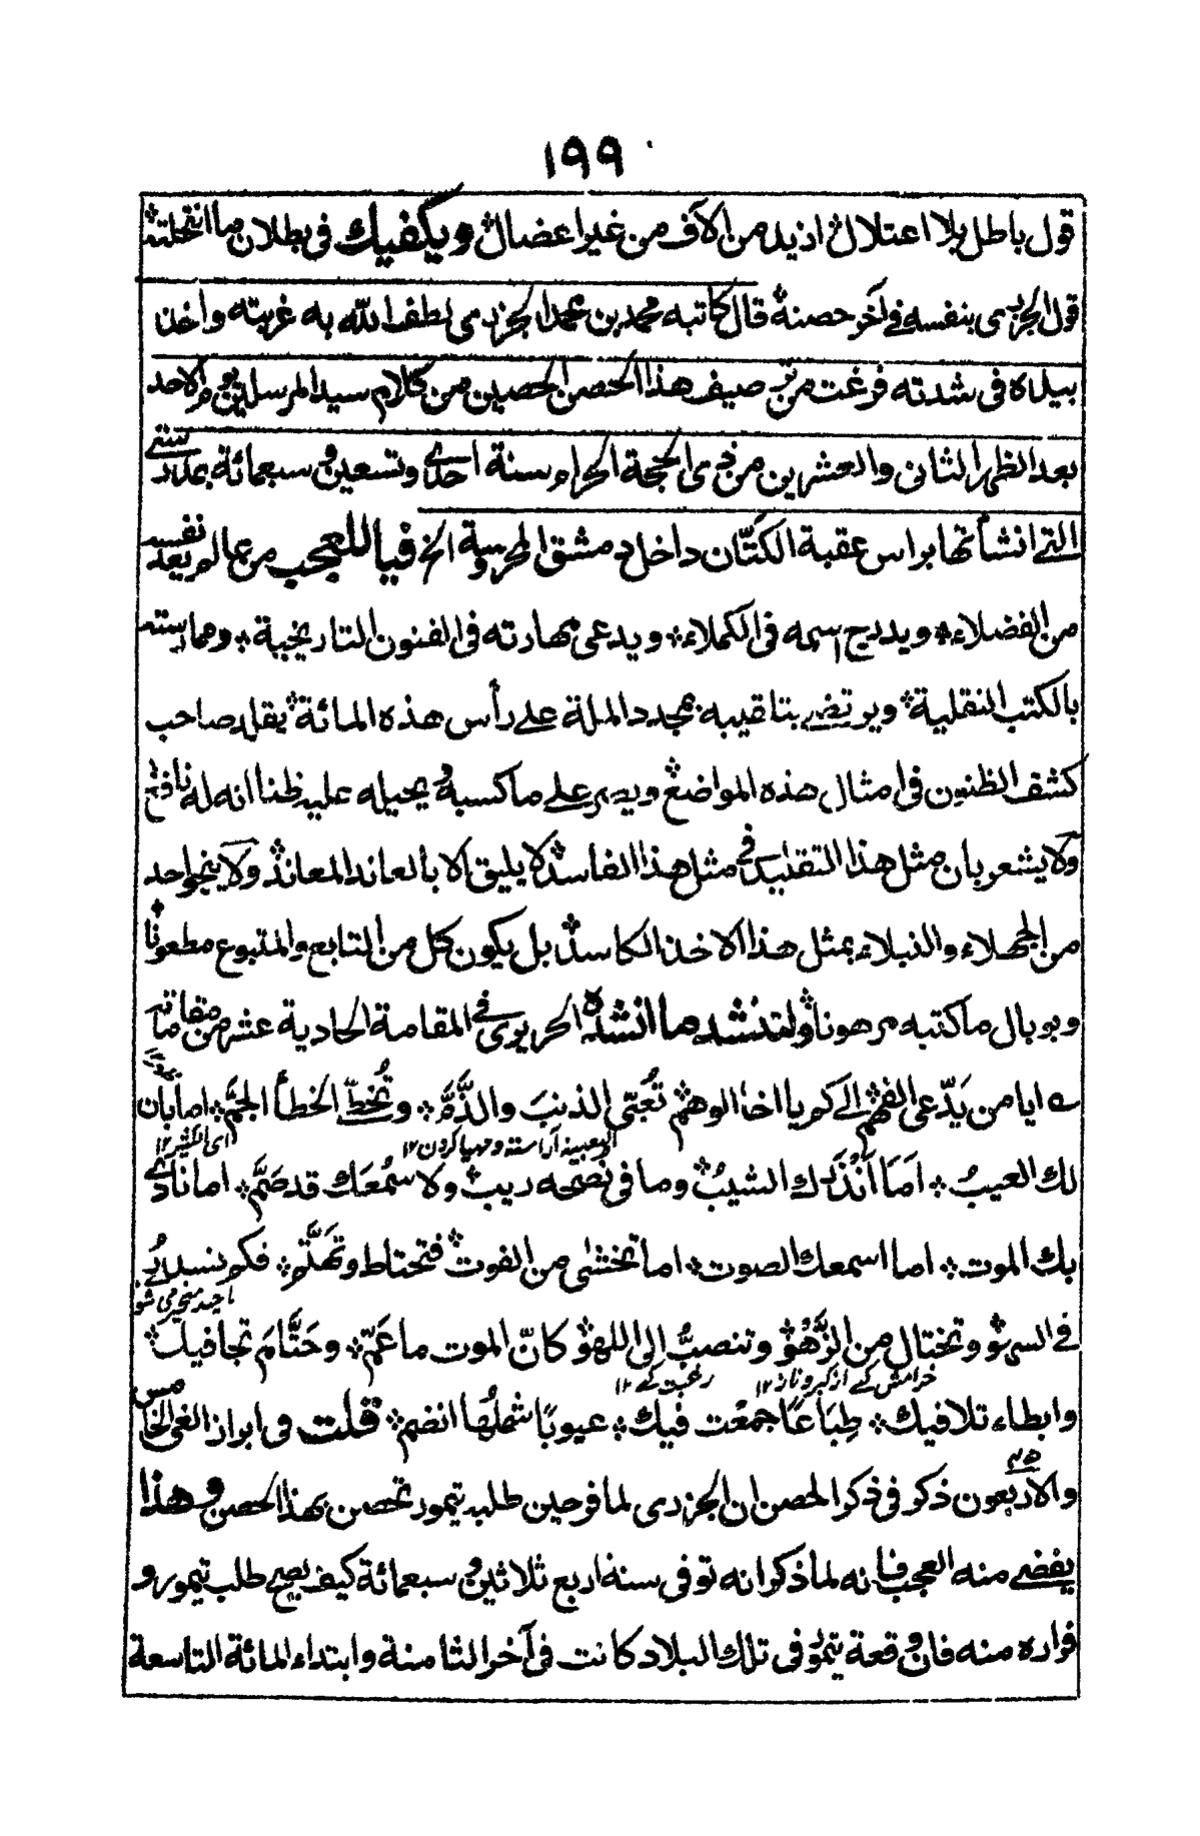 ١٩٩
قول باطل بلا اعتلال ازيد من الآف من غير اعضال ويكفيك فى بطلان ما انتحلته
قول الجزرى بنفسه فى آخر حصنه قال كاتبه محمد بن محمد الجزرى لطف الله به غربته واخذ
بيداه فى شدته فرغت من ترصيف هذا الحصن الحصين من كلام سيد المرسلين يوم الاحد
بعد الظهر الثانى والعشرين من ذى الحجة الحرام سنة احدى وتسعين و سبعمائة بمدرستى
التى انشأتها براس عقبة الكتّان داخل دمشق المحروسة الخ فيا للعجب من عالم يعد نفسه
من الفضلاء ويدرج اسمه فى الكملاء ويدعى مهارته فى الفنون التاريخية وممارسته
بالكتب النقلية ويرتضى بتلقيبه بمجدد الملة على رأس هذه المائة يقلد صاحب
كشف الظنون فى امثال هذه المواضع ويصر على ما كسبه ويحيله عليه ظنا انه له نافع
ولا يشعر بان مثل هذا التقليد فى مثل هذا الفاسد لا يليق الا بالعاند المعاند ولا ينجو احد
من الجهلاء والنبلاء بمثل هذا الاخذ الكاسد بل يكون كل من التابع والمتبوع مطعونا
وبوبال ما كتبه مرهونا ولننشد ما انشده الحريرى فى المقامة الحادية عشر من مقاماته
ايا من يَدّعى الفهم الى كم يا اخا الوهم تُعَبّى الذنبَ والذَّمَّ وتُخطى الخطأ الجمَّ اما بان
اى الكثير ١٢ التعبية آراسته ومهيا كردن ١٢
لك العيبُ اَمَا اَنْذَرك الشيبُ وما فى نصحه ريب ولا سمْعك قد صَمَّ اما نادى
بك الموت اما اسمعك الصوت اما تخشى من الفوت فتحتاط وتهتَّم فكم تسدرُ
فى السهو وتختال من الزَّهْو وتنصبُّ الى اللهو كانّ الموت ما عَمّ وحَتَّامَ تجافيك
خرامش كے از كبر وناز ١٢ رغبت كے ١٢
وابطاء تلافيك طِبَاعًا جمعْت فيك عيوبًا شملُها انضم قلت فى ابراز الغى الخامس
والاربعون ذكر فى ذكر الحصن ان الجزرى لما فر حين طلبه تيمور تحصن بهذا الحصن وهذا
يقضى منه العجب فانه لما ذكر انه توفى سنة اربع ثلاثين و سبعمائة كيف يصح طلب تيمور و
فراره منه فان وقعة تيمور فى تلك البلاد كانت فى آخر الثامنة وابتداء المائة التاسعة